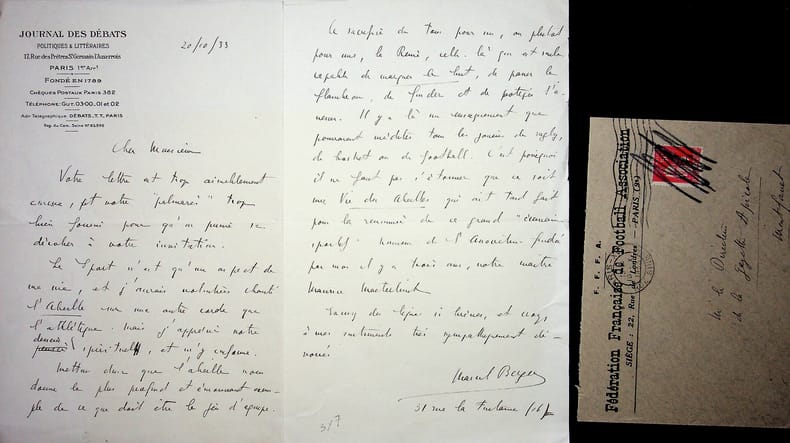 JOURNAL DES DÉBATS
POLITIQUES & LITTÉRAIRES
17, Rue des Prêtres St Germain l'Auxerrois
PARIS 1er Arrt
FONDÉ EN 1789
CHÈQUES POSTAUX PARIS 382
TÉLÉPHONE: GUT. 03-00, 01 et 02
Adr Télégraphique DÉBATS. T.T. PARIS
Reg. du Com. Seine N° 82.898
20/10/33
Cher Monsieur
Votre lettre est trop aimablement
conçue, et votre "palmarès" trop
bien fourni pour qu'on puisse se
dérober à votre invitation.
Le Sport n'est qu'un aspect de
ma vie, et j'aurais volontiers chanté
l'Abeille sur une autre corde que
l'athlétique. Mais j'approuve votre
dessein
spirituel, et m'y conforme.
Mettons donc que l'abeille nous
donne le plus profond et émouvant exem-
ple de ce que doit être le jeu d'équipe.
Le sacrifice de tous pour un, ou plutôt
pour une, la Reine, celle-là qui est seule
capable de marquer le but, de passer le
flambeau, de fonder et de protéger l'a-
venir. Il y a là un enseignement que
pourraient méditer tous les joueurs de rugby,
de basket ou de football. C'est pourquoi
il ne faut pas s'étonner que ce soit
une Vie des Abeilles qui ait tant fait
pour la renommée de ce grand "écrivain
sportif" honneur de l'Association fondée
par moi il y a trois ans, notre maître
Maurice Maeterlinck.
à mes sentiments très sympathiquement dé-
voués
Marcel Berger
31 rue la Fontaine (16)
317
F. F. F. A.
Fédération Française de Football Association
SIÈGE : 22, Rue de Londres — PARIS (9e)
M. le Directeur
de la Gazette Apicole
Montfavet